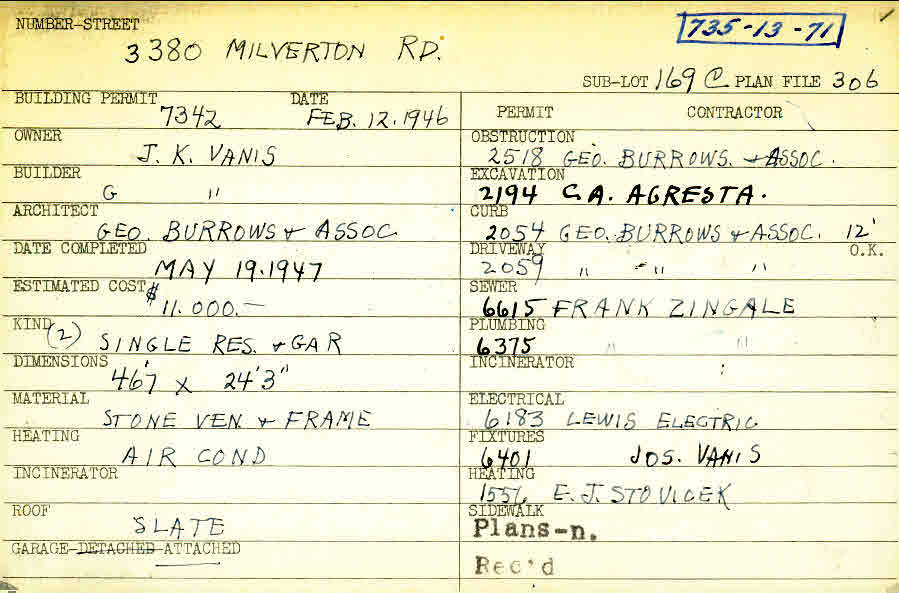 NUMBER-STREET
3380 MILVERTON RD.
735-13-71
SUB-LOT 169 C PLAN FILE 306
BUILDING PERMIT DATE
7342 FEB. 12. 1946
OWNER
J. K. VANIS
BUILDER
G "
ARCHITECT
GEO. BURROWS + ASSOC
DATE COMPLETED
MAY 19. 1947
ESTIMATED COST
$ 11.000.—
KIND
(2) SINGLE RES. + GAR
DIMENSIONS
46'7 x 24'3"
MATERIAL
STONE VEN. + FRAME
HEATING
AIR COND
INCINERATOR
ROOF
SLATE
GARAGE-DETACHED-ATTACHED
PERMIT CONTRACTOR
OBSTRUCTION
2518 GEO. BURROWS. + ASSOC.
EXCAVATION
2194 C.A. AGRESTA.
CURB
2054 GEO. BURROWS + ASSOC. 12'
DRIVEWAY O.K.
2059 " - " "
SEWER
6615 FRANK ZINGALE
PLUMBING
6375 " "
INCINERATOR
ELECTRICAL
6183 LEWIS ELECTRIC
FIXTURES
6401 JOS. VANIS
HEATING
1556 E. J. STOVICEK
SIDEWALK
Plans-n.
Rec'd